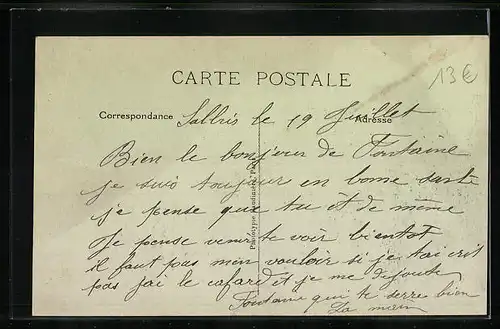 13€
CARTE POSTALE
Correspondance
Adresse
Salbris le 19 Juillet
Bien le bonjour de Fontaine
je suis toujour en bonne santé
je pense que tu ét de même
Je pense venir te voir bientot
il faut pas men vouloir si je tai crit
pas jai le cafard et je me dégoute
Fontaine qui te serre bien
La main